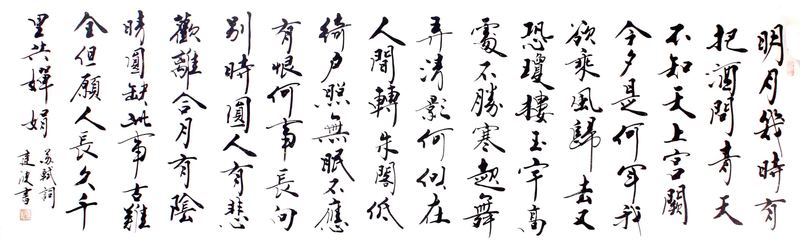 明月幾時有
把酒問青天
不知天上宮闕
今夕是何年我
欲乘風歸去又
恐瓊樓玉宇高
處不勝寒起舞
弄清影何似在
人間轉朱閣低
綺戶照無眠不應
有恨何事長向
別時圓人有悲
歡離合月有陰
晴圓缺此事古難
全但願人長久千
里共嬋娟
蘇軾詞
書